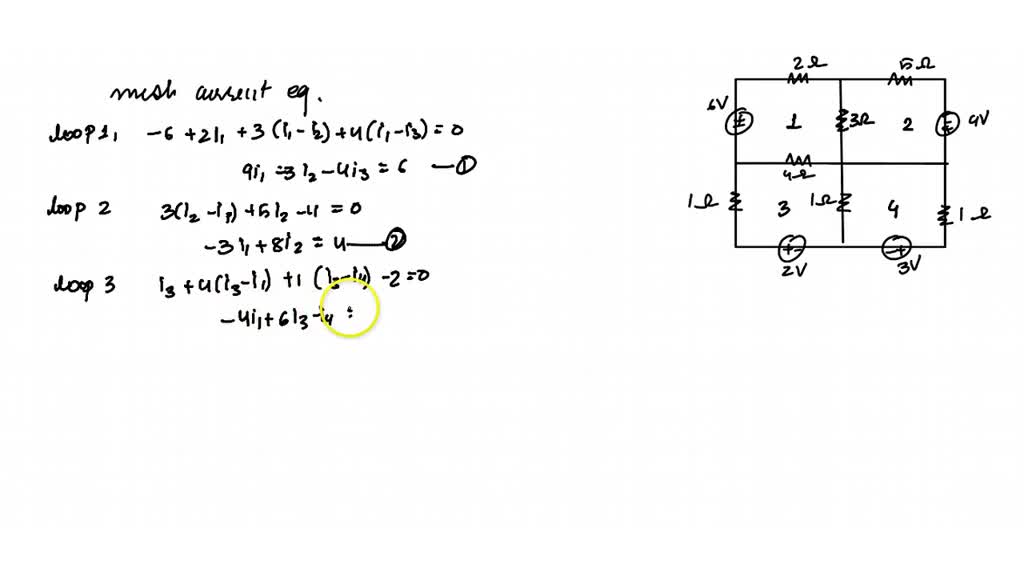 mesh current eq.
loop 1, -6 + 2i, + 3 (i, - i2) + 4 (i, - i3) = 0
9i, = 3 i2 - 4i3 = 6 — ①
loop 2 3(i2 - i,) + 5i2 - 4 = 0
-3i, + 8i2 = 4 — ②
loop 3 i3 + 4(i3 - i,) + 1 (i3 - i4) - 2 = 0
-4i, + 6i3 - i4 =
2Ω 5Ω
6V 1 3Ω 2 4V
4Ω
1Ω 3 1Ω 4 1Ω
2V 3V